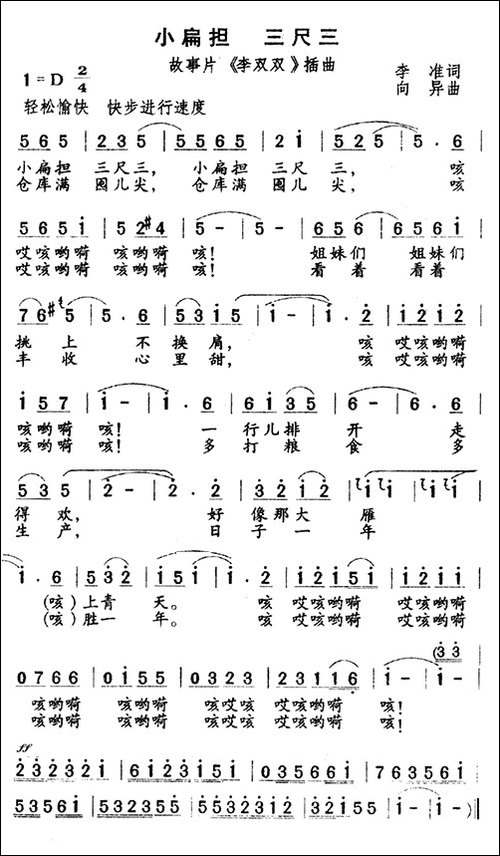 小扁担 三尺三
故事片《李双双》插曲
1=D 2/4
李 准词
向 异曲
轻松愉快 快步进行速度
5 6 5 | 2 3 5 | 5 5 6 5 | 2 1̇ | 5 2 5 | 5 · 6 |
小扁担 三尺三, 小扁担 三尺三, 咳
仓库满 囤儿尖, 仓库满 囤儿尖, 咳
5 6 5 1̇ | 5 2 #4 | 5 - | 5 - | 6 5 6 | 6 5 6 1̇ |
哎咳哟嗬 咳哟嗬 咳! 姐妹们 姐妹们
哎咳哟嗬 咳哟嗬 咳! 看着 看着
7 6 #5 | 5 · 6 | 5 3̇ 1̇ 5 | 1̇ - | 1̇ · 2̇ | 1̇ 2̇ 1̇ 2̇ |
挑上 不换肩, 咳 哎咳哟嗬
丰收 心里甜, 咳 哎咳哟嗬
1̇ 5 7 | 1̇ - | 1̇ · 6 | 6 1̇ 3 5 | 6 - | 6 · 6 |
咳哟嗬 咳! 一行儿排开 走
咳哟嗬 咳! 多打粮食 多
5 3 5 | 2̇ - | 2̇ · 2̇ | 3̇ 2̇ 1̇ 2̇ | 1̇ - | 1̇ - |
得欢, 好像那大雁
生产, 日子一年
1̇ · 6 | 5 3̇ 2̇ | 1̇ 5 1̇ | 1̇ · 2̇ | 1̇ 2̇ 1̇ 5 1̇ | 1̇ 2̇ 1̇ 1̇ |
(咳)上青天。 咳 哎咳哟嗬 哎咳哟嗬
(咳)胜一年。 咳 哎咳哟嗬 哎咳哟嗬
(3̇ 3̇
0 7 6 6 | 0 1̇ 5 5 | 0 3 2 3 | 2 3 1 1 6 | 1̇ - | 1̇ - |
咳哟嗬 咳哟嗬 咳哎咳 哎咳哟嗬 咳!
咳哟嗬 咳哟嗬 咳哎咳 哎咳哟嗬 咳!
sf
2̇ 3̇ 2̇ 3̇ 2̇ 1̇ | 6 1̇ 2̇ 3̇ 1̇ 5 | 0 3 5 6 6 1̇ | 7 6 3 5 6 1̇ |
5 3 5 6 1̇ | 5 3 2 3 5 5 | 5 5 3̇ 2̇ 3̇ 1̇ 2̇ | 3̇ 1̇ 2̇ 5 5 | 1̇ - | 1̇ - ) ||